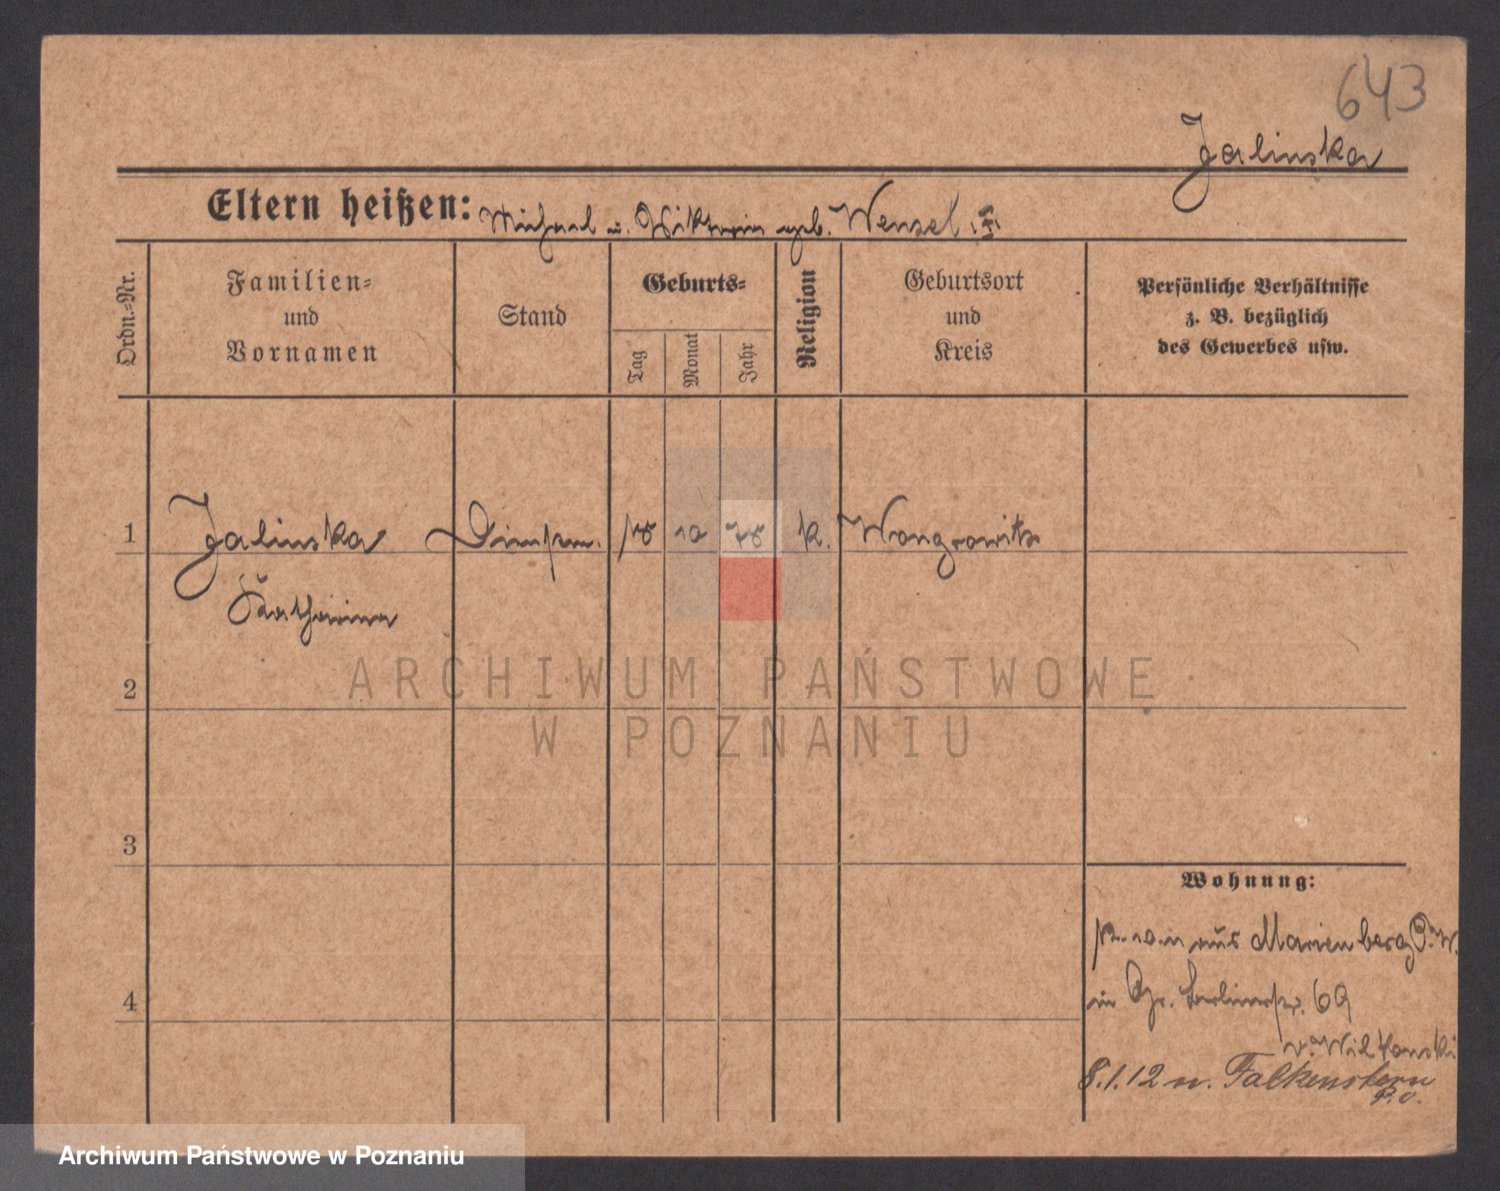 643
Jalinska
Eltern heißen: Michael u. Viktoria geb. Wenzel
Ordn.-Nr.
Familien-
und
Vornamen
Stand
Geburts-
Tag
Monat
Jahr
Religion
Geburtsort
und
Kreis
Persönliche Verhältnisse
z. B. bezüglich
des Gewerbes usw.
1
Jalinska
10
k.
Wongrowitz
Katharina
2
ARCHIWUM PAŃSTWOWE
W POZNANIU
3
Wohnung:
aus Marienberg
4
in Gr. Berlinerstr. 69
v. Wilkonski
8.1.12 n. Falkenstern
P. O.
Archiwum Państwowe w Poznaniu